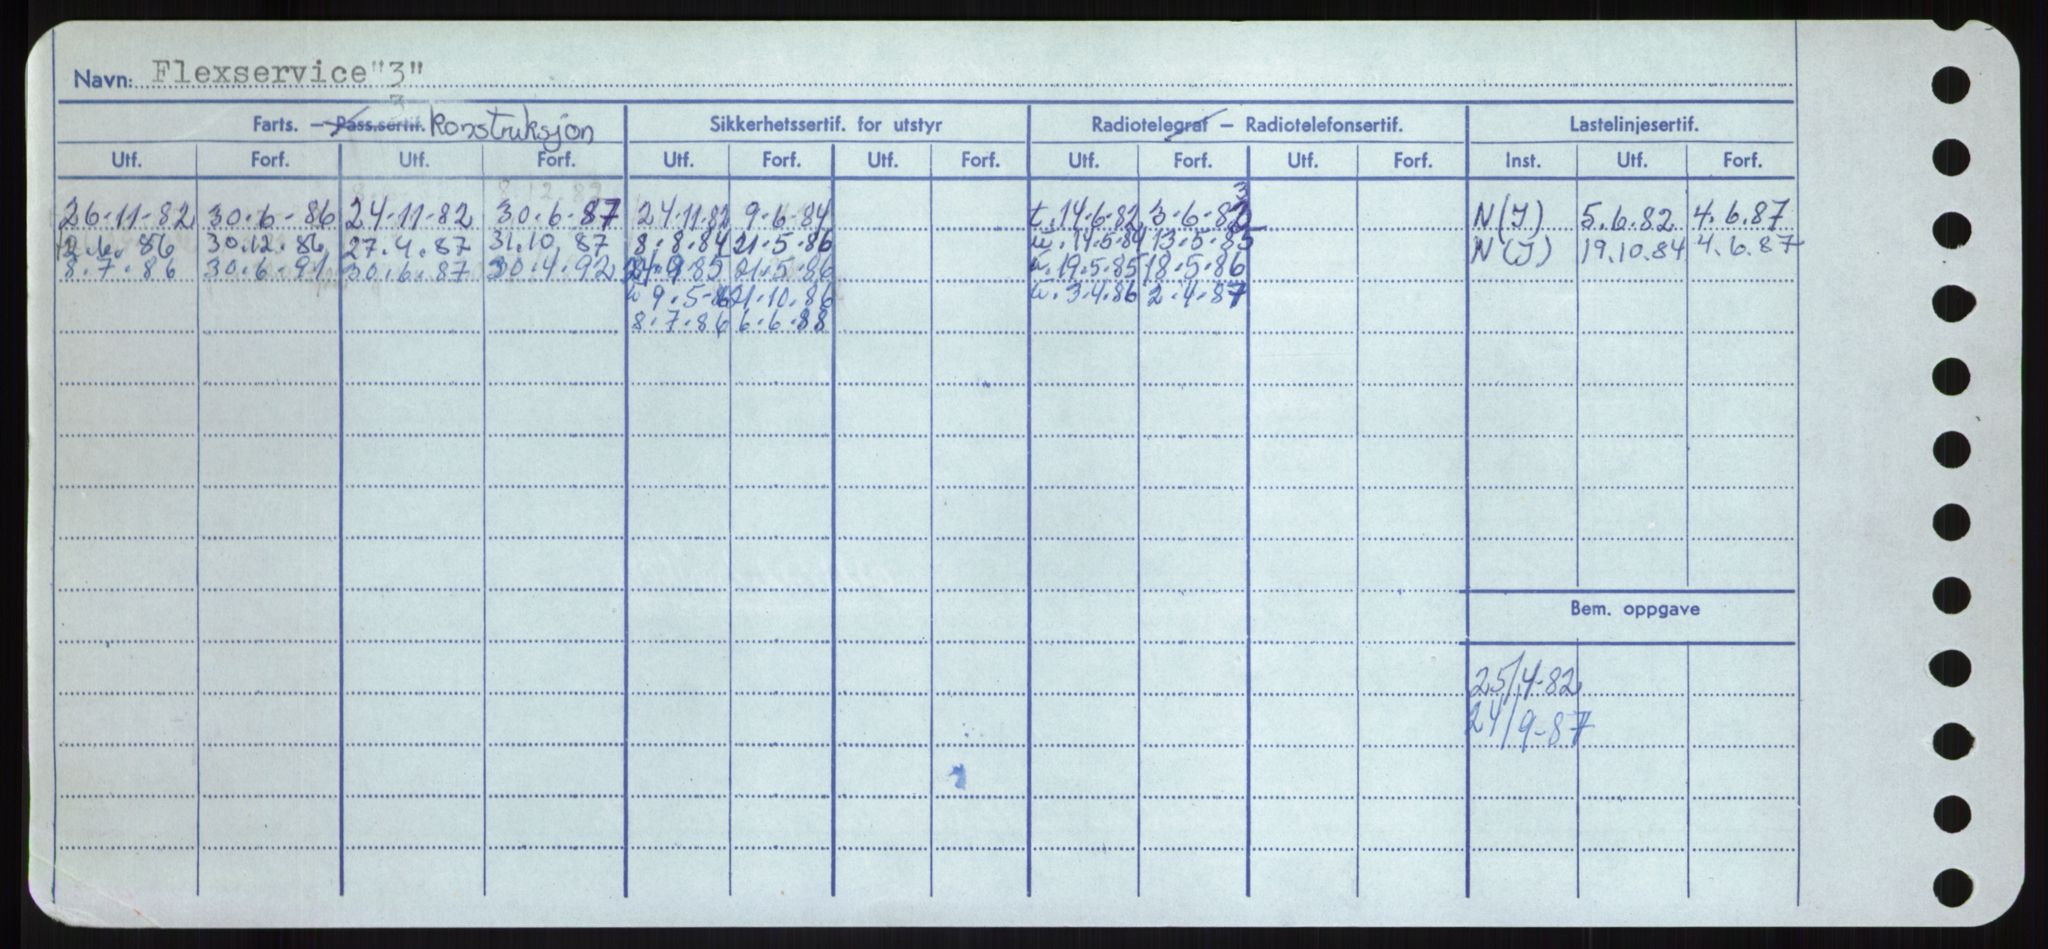 Navn: Flexservice "3"
Farts. – Pass.sertif. Konstruksjon Sikkerhetssertif. for utstyr Radiotelegraf – Radiotelefonsertif. Lastelinjesertif.
Utf. Forf. Utf. Forf. Utf. Forf. Utf. Forf. Utf. Forf. Utf. Forf. Inst. Utf. Forf.
26-11-82 30.6-86 24-11-82 30.6.87 24.11.82 9-6-84 t.14-6-82 3-6-83 N(I) 5.6.82 4.6.87
.6.86 30.12.86 27.4.87 31.10.87 8.8.84 21.5.86 14.5.84 13.5.85 N(I) 19.10.84 4.6.87
8.7.86 30.6.91 30.6.87 30.4.92 24.9.85 21.5.86 19.5.85 18.5.86
9.5-86 21.10.86 3.4.86 2.4.87
8.7.86 6.6.88
Bem. oppgave
25/4-82
24/9-87